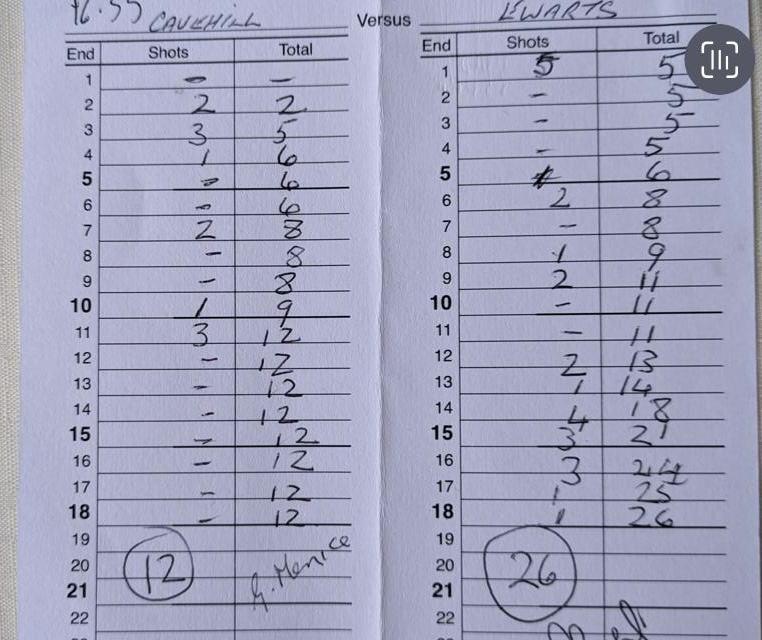 CAVEHILL Versus EWARTS
End Shots Total End Shots Total
1 - - 1 5 5
2 2 2 2 - 5
3 3 5 3 - 5
4 1 6 4 - 5
5 - 6 5 1 6
6 - 6 6 2 8
7 2 8 7 - 8
8 - 8 8 1 9
9 - 8 9 2 11
10 1 9 10 - 11
11 3 12 11 - 11
12 - 12 12 2 13
13 - 12 13 1 14
14 - 12 14 4 18
15 - 12 15 3 21
16 - 12 16 3 24
17 - 12 17 1 25
18 - 12 18 1 26
19 19
20 12 20 26
21 21
22 22